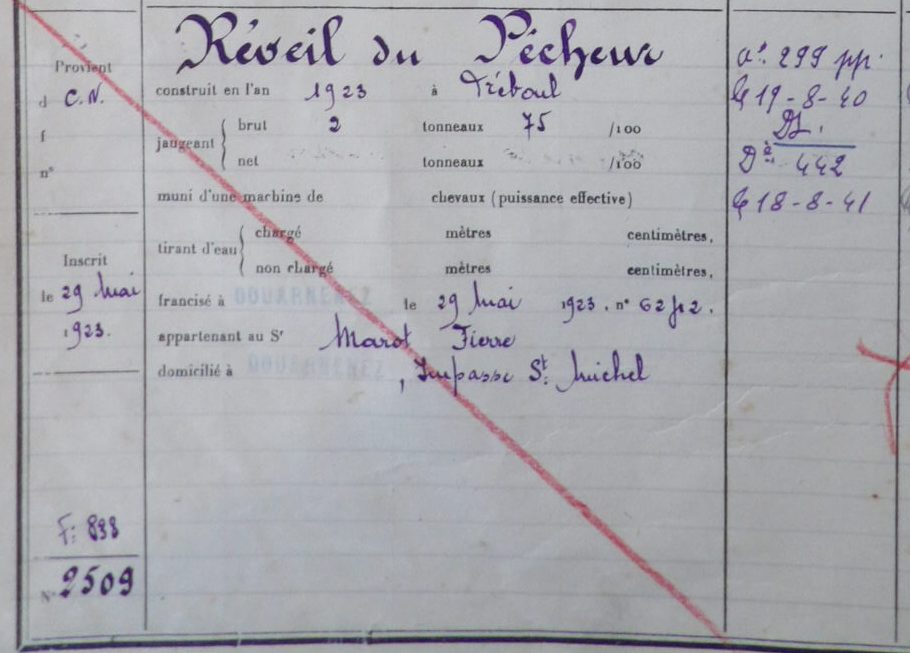 Réveil du Pêcheur
Provient
d C.N.
f
n°
Inscrit
le 29 Mai
1923.
F: 838
N° 2509
construit en l'an 1923 à Tréboul
jaugeant brut 2 tonneaux 75 /100
net tonneaux /100
muni d'une machine de chevaux (puissance effective)
tirant d'eau chargé mètres centimètres,
non chargé mètres centimètres,
francisé à DOUARNENEZ le 29 Mai 1923. n°
appartenant au Sr Marot Pierre
domicilié à DOUARNENEZ, Impasse St. Michel
299 pp.
19-8-40
442
18-8-41